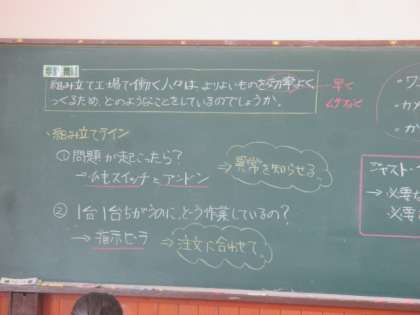 学習問題
組み立て工場で働く人々は、よりよいものを効率よく
つくるため、どのようなことをしているのでしょうか。
早く
ムダなく
・組み立てライン
①問題が起こったら?
→ひもスイッチとアンドン
⇒異常を知らせる。
②1台1台ちがうのに、どう作業しているの?
→指示ビラ
⇒注文に合わせて。
ジャスト・
→必要な
必要